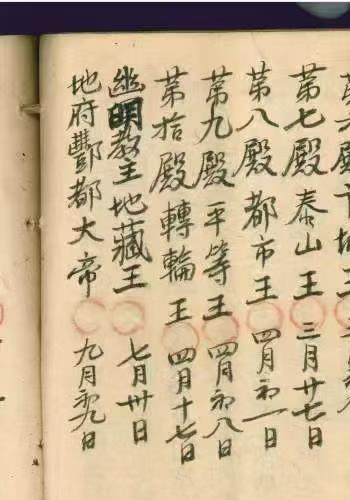 苐七殿泰山王 三月廿七日
苐八殿都市王 四月初一日
苐九殿平等王 四月初八日
苐拾殿轉輪王 四月十七日
幽明教主地藏王 七月卅日
地府酆都大帝 九月初九日